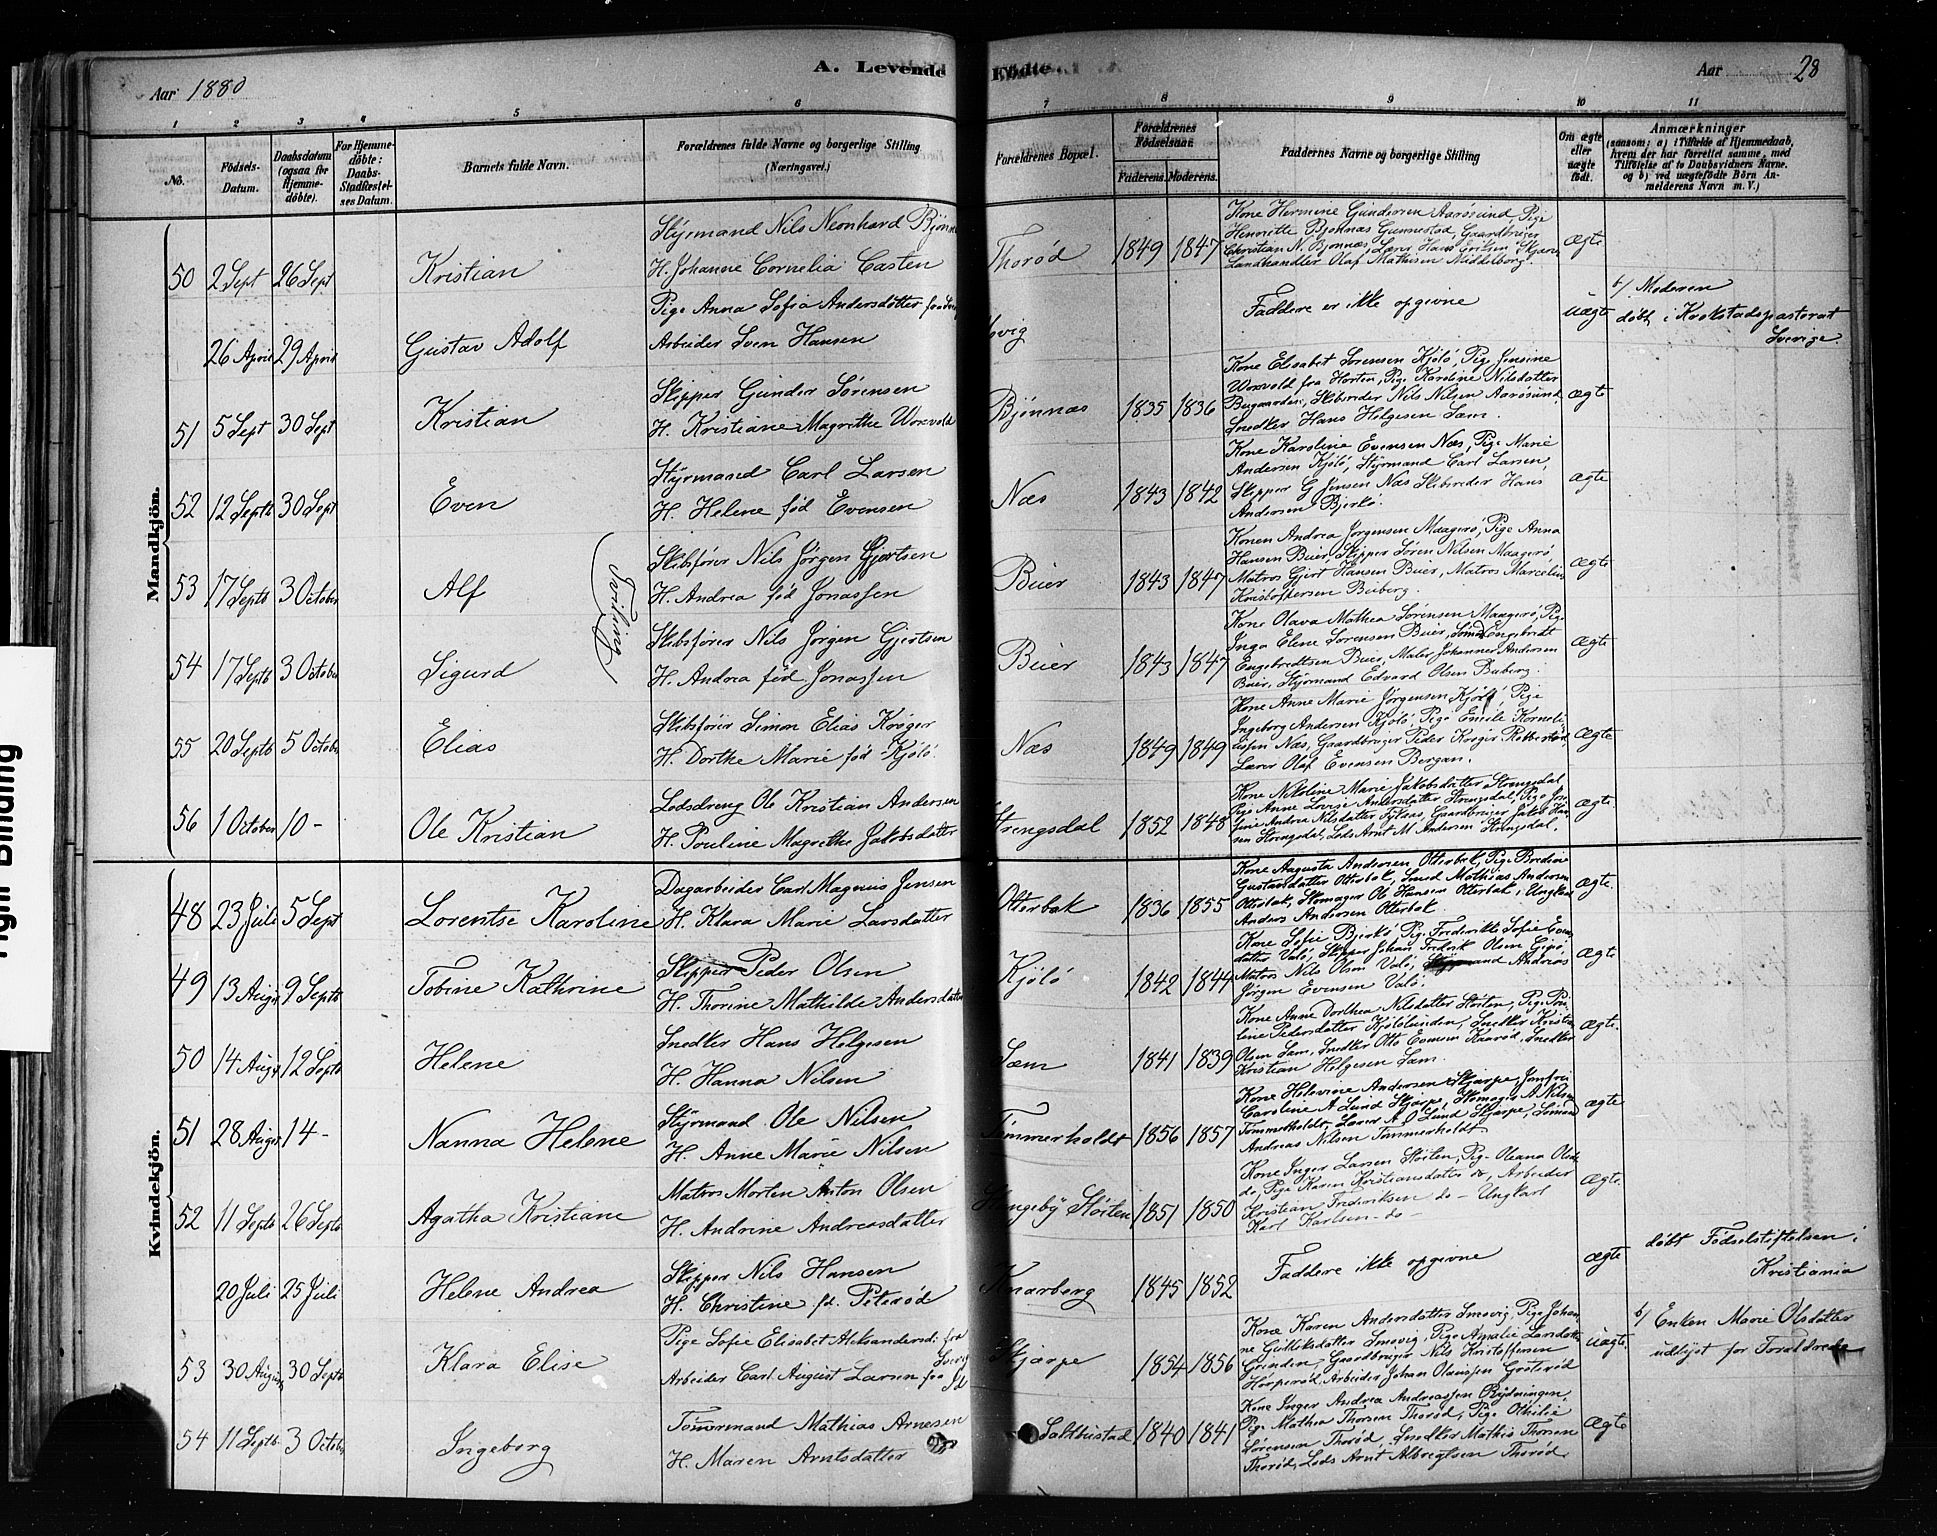 A. Levende Födte.
Aar 1880
Aar 28
1 2 3 4 5 6 7 8 9 10 11
No.
Födsels-Datum.
Daabsdatum (ogsaa för Hjemme-döbte).
For Hjemme-döbte: Daabs-Stadfæstel-ses Datum.
Barnets fulde Navn.
Forældrenes fulde Navne og borgerlige Stilling (Næringsvei.)
Forældrenes Bopæl.
Forældrenes Födselsaar. Faderens. Moderens.
Faddernes Navne og borgerlige Stilling
Om ægte eller uægte födt.
Anmærkninger
(saasom: a) i Tilfælde af Hjemmedaab, hvem der har forrettet samme, med Tilföielse af to Daabsvidners Navne. og b) ved uægtefödte Börn An-melderens Navn m. V.)
Mandkjön.
50 2 Sept 26 Sept Kristian
Styrmand Nils Neonhard Bjønn
H. Johanne Cornelia Casten
Thorød 1849 1847
Kone Hermine Gundersen Aarøsund, Pige
Henriette Bjønnas Gunnestad, Gaardbruger
Christian N. Bjønnæs, Lærer Hans Eriksen Skjærp
Landhandler Olaf Mathisen Middelborg.
ægte
26 April 29 April Gustav Adolf
Pige Anna Sofia Andersdatter fra
Arbeider Sven Hansen
Faddere er ikke opgivne
uægte
b/ Moderen
døbt i Krokstadspastorat
Sverige.
51 5 Sept 30 Sept Kristian
Skipper Gunder Sørensen
H. Kristiane Magrethe Worvold
Bjønnæs 1835 1836
Kone Elisabet Sørensen Kjølø, Pige Jensine
Worvold fra Horten, Pige Karoline Nilsdatter
Bugaarden, Skibsreder Nils Nilsen Aarøsund,
Snedker Hans Helgesen Sæm.
ægte
52 12 Septb 30 Sept Even
Styrmand Carl Larsen
H. Helene fød Evensen
Næs 1843 1842
Kone Karoline Evensen Næs, Pige Marie
Andersen Kjølø, Styrmand Carl Larsen,
Skipper G Jensen Næs Skibsreder Hans
Andersen Bjerkø.
ægte
Tvilling
53 17 Septb 3 October Alf
Skibsfører Nils Jørgen Gjertsen
H. Andrea fød Jonassen
Buer 1843 1847
Konen Andrea Jørgensen Maagerø, Pige Anna
Hansen Buer, Skipper Søren Nilsen Maagerø
Matros Gjert Hansen Buer, Matros Marcelius
Kristoffersen Buberg.
ægte
54 17 Septb 3 October Sigurd
Skibsfører Nils Jørgen Gjertsen
H. Andrea fød Jonassen
Buer 1843 1847
Kone Olava Mathea Sørensen Maagerø, Pige
Inga Elene Sørensen Buer, Engebredt
Engebredtsen Buer, Maler Johannes Andersen
Buer, Styrmand Edvard Olsen Buberg.
ægte
55 20 Septb 5 October Elias
Skibsfører Simon Elias Krøger
H. Dorthe Marie fød Kjølø
Næs 1849 1849
Kone Anne Marie Jørgensen Kjølø, Pige
Ingeborg Andersen Kjølø, Pige Emilie Korneli
ussen Næs, Gaardbruger Peder Krøger
Lærer Olaf Evensen Bergan.
ægte
56 1 October 10 - Ole Kristian
Lodsdreng Ole Kristian Andersen
H. Pouline Magrethe Jakobsdatter
Strengsdal 1852 1848
Kone Nikoline Marie Jakobsdatter Strengsdal
Pige Anne Lovise Andersdatter Strengsdal, Pige Jose
fine Andrea Nilsdatter, Gaardbruger Jakob Han
sen Strengsdal, Lods Arnt M Andersen Strengsdal.
ægte.
Kvindekjön.
48 23 Juli 5 Sept Lorentse Karoline
Dagarbeider Carl Magnus Jensen
H. Klara Marie Larsdatter
Otterbæk 1836 1855
Kone Augusta Andersen Otterbæk, Pige Bredine
Gustavsdatter Otterbæk, Smed Mathias Andersen
Otterbæk, Skomager Ole Hansen Otterbæk, Ungkarl
Anders Andersen Otterbæk
ægte.
49 13 Augus 9 Septb Tobine Kathrine
Skipper Peder Olsen
H. Thorine Mathilde Andersdatter
Kjølø 1842 1844
Kone Sofie Bjerkø Pige Fredrikke Sofie Evens
datter Valø, Skipper Johan Fredrik Olsen Gipø
Matros Nils Olsen Valø, Andreas
Jørgen Evensen Valø.
ægte
50 14 Augs 12 Septb Helene
Snedker Hans Helgesen
H. Hanna Nilsen
Sæm 1841 1839
Kone Anne Dorthea Nilsdatter Støiten, Pige Pou
line Pedersdatter Kjølølunden, Snedker Kristen
Olsen Sæm, Snedker Otto Evensen Kaarød, Snedker
Kristian Helgesen Sæm.
ægte.
51 28 Augus 14 - Nanna Helene
Styrmand Ole Nilsen
H. Anne Marie Nilsen
Tømmerholdt 1856 1857
Kone Helevine Andersen Skjærpe, Jomfru
Caroline A Lund Skjærpe, Skomager A Nilsen
Tømmerholdt, Lærer A O Lund Skjærpe, Sømand
Andreas Nilsen Tømmerholdt
ægte
52 11 Septb 26 Septb Agatha Kristiane
Matros Morten Anton Olsen
H. Andrine Andreasdatter
Hengeby Støiten 1851 1850
Kone Inger Larsen Støiten, Pige Oleana Olsd
do, Pige Karen Kristiansdatter do, Arbeider
Kristian Fredriksen do - Ungkarl
Karl Karlsen - do -
ægte.
20 Juli 25 Juli Helene Andrea
Skipper Nils Hansen
H. Christine fd. Peterød
Knarberg 1845 1852
Faddere ikke opgivne
ægte
døbt Fødselstiftelsen i
Kristiania
53 30 August 30 Septb Klara Elise
Pige Sofie Elisabet Aleksandersd: fra
Sverig
Arbeider Carl August Larsen fra do
Skjærpe 1854 1856
Kone Karen Andersdatter Smøvig, Pige Johan
ne Gulliksdatter Smøvig, Pige Amalie Larsdatter
Grinden, Gaardbruger Nils Kristoffersen
Hørperød, Arbeider Johan Olaussen Grøterød
uægte.
b/ Enken Marie Olsdatter
udlyst for Forældrene
54 11 Septb. 3 October Ingeborg
Tømmermand Mathias Arnesen
H. Maren Arntsdatter
Salthustad 1840 1841
Kone Inger Andrea Andreassen Rydningen,
Pige Mathea Thorsen Thorød, Pige Othilie
Sørensen Thorød, Snedker Mathis Thorsen
Thorød, Lods Arnt Albregtsen Thorød.
Ægte
Tight Binding